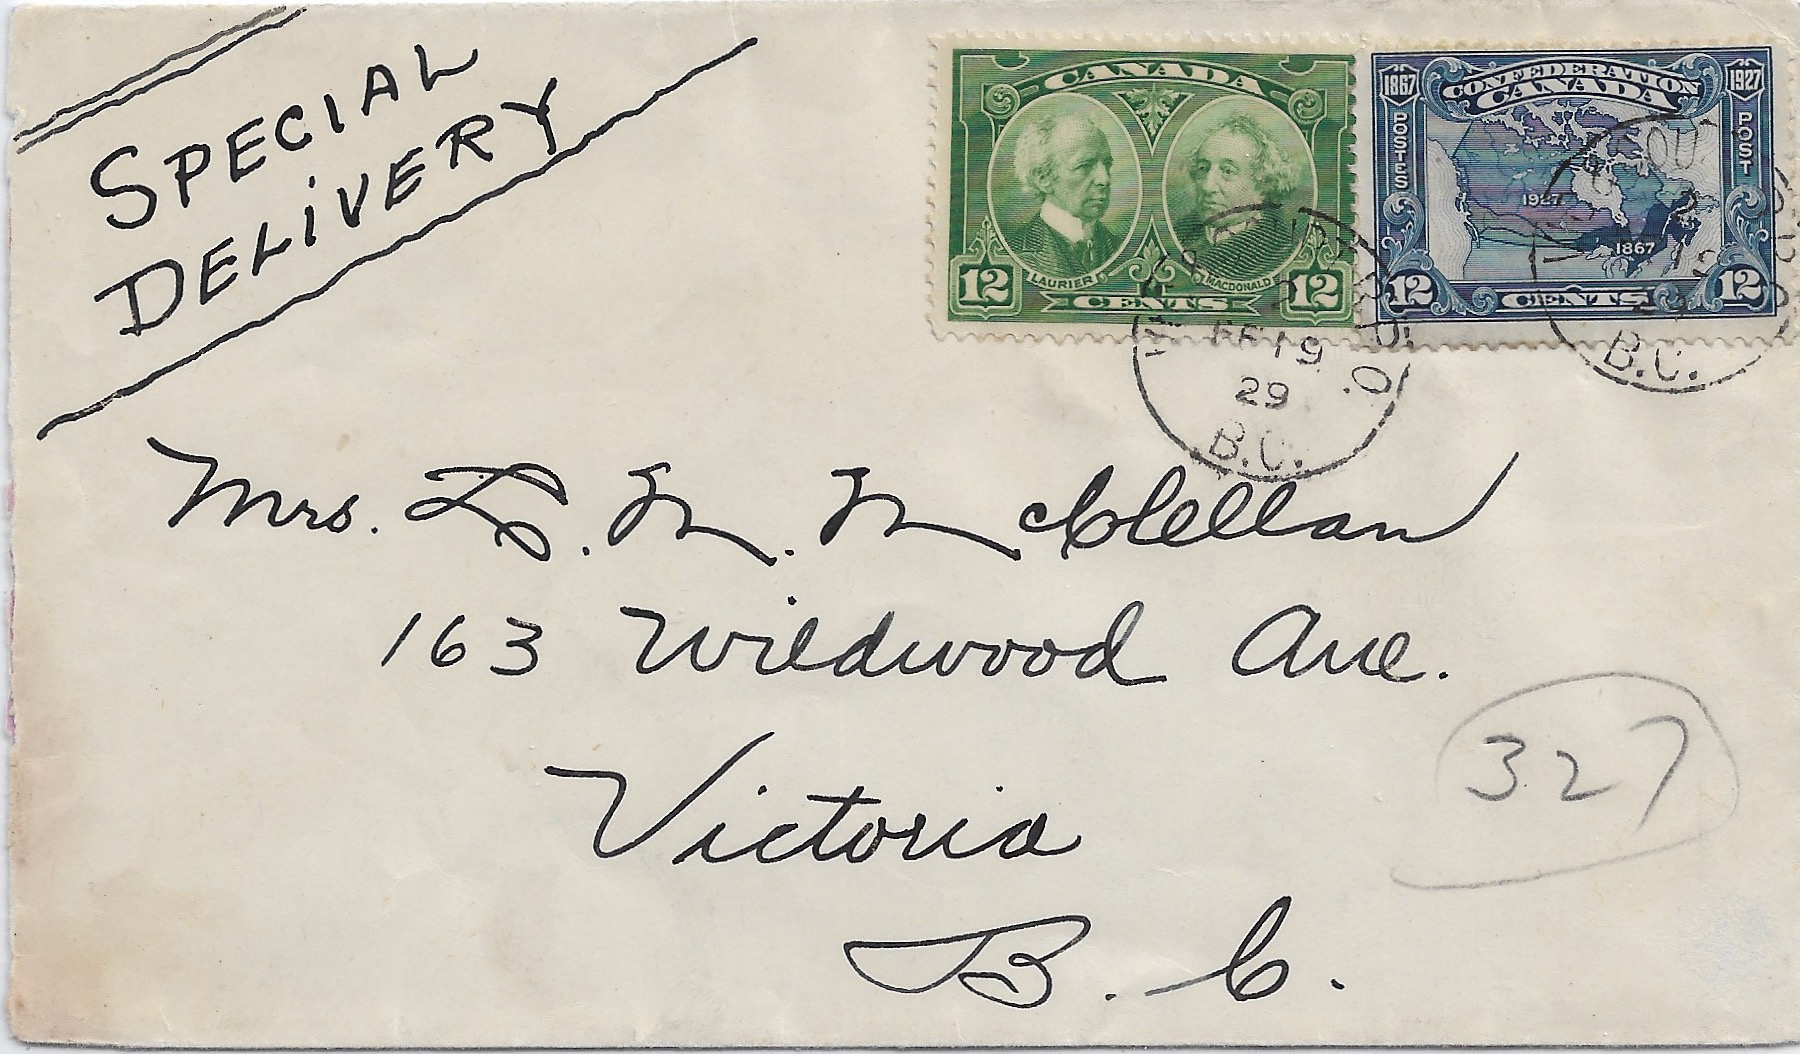 SPECIAL
DELIVERY
CANADA
LAURIER
MACDONALD
12 CENTS 12
1867 CONFEDERATION 1927
CANADA
POSTES
POST
1927
1867
12 CENTS 12
2
FE 19
29
B.C.
2
19
29
B.C.
Mrs. D. M. McClellan
163 Wildwood Ave.
Victoria
B. C.
327